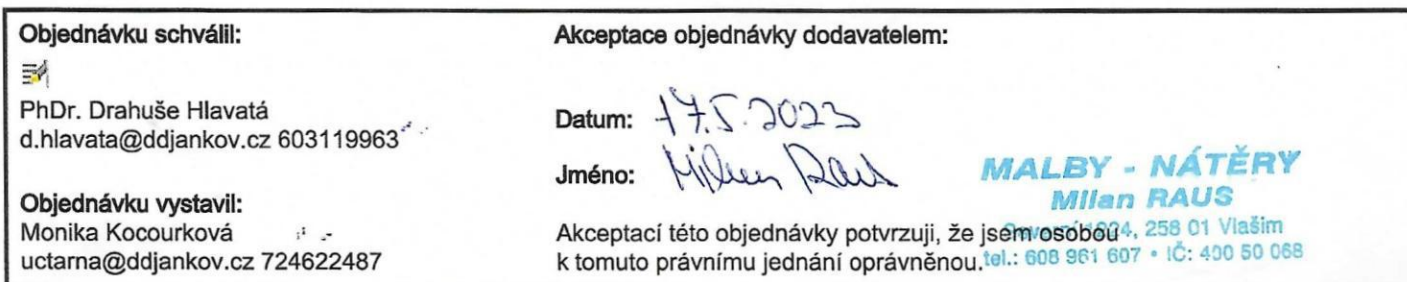 Objednávku schválil:
PhDr. Drahuše Hlavatá
d.hlavata@ddjankov.cz 603119963
Objednávku vystavil:
Monika Kocourková
uctarna@ddjankov.cz 724622487
Akceptace objednávky dodavatelem:
Datum: 17.5.2023
Jméno: Milan Raus
Akceptací této objednávky potvrzuji, že jsem osobou
k tomuto právnímu jednání oprávněnou.
MALBY - NÁTĚRY
Milan RAUS
258 01 Vlašim
tel.: 608 961 607 • IČ: 400 50 068